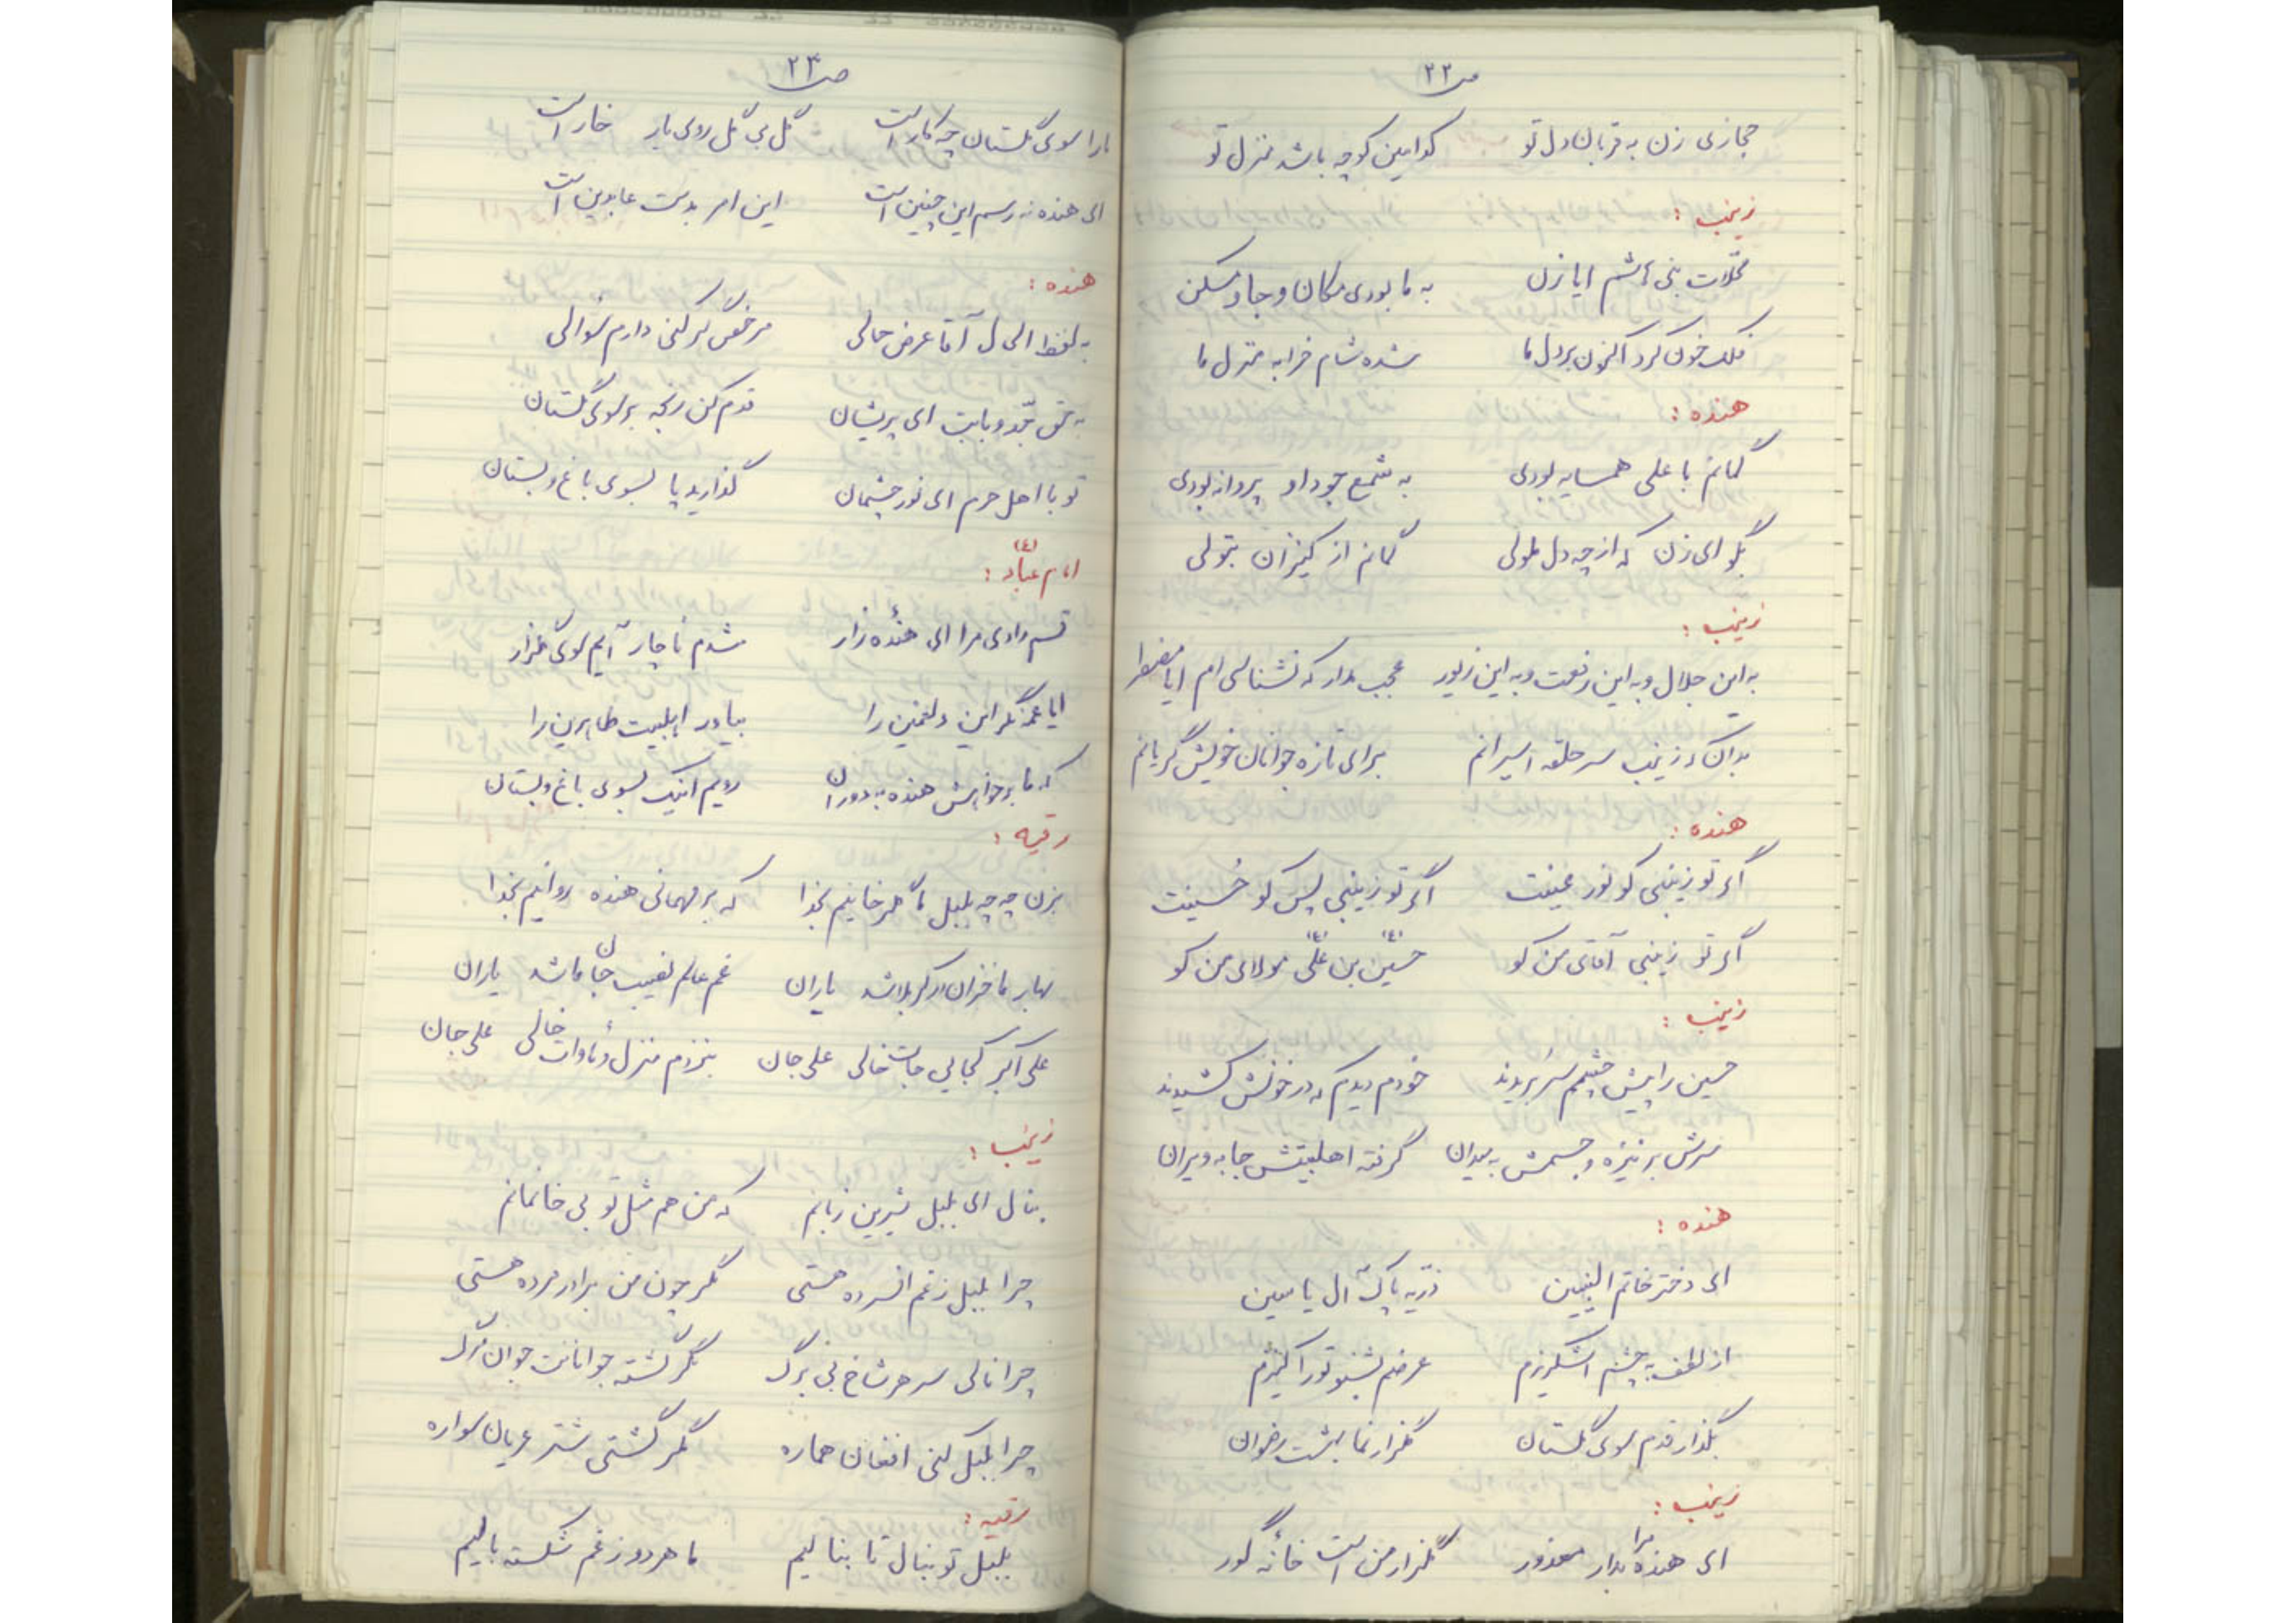 ص ۲۲
حجازی زن به قربان دل تو   کدامین کوچه باشد منزل تو
زینب :
محلات بنی هاشم ایا زن   به ما بودی مکان و جا و مسکن
فلک خون کرد اکنون بر دل ما   شده شام خرابه منزل ما
هنده :
گمانم با علی همسایه بودی   به شمع جود او پروانه بودی
بگو ای زن که از چه دل ملولی   گمانم از کنیزان بتولی
زینب :
به این جلال و به این رفعت و به این زیور   عجب مدار که نشناسی ام ایا مضطر
بدان که زینب سر حلقه اسیرانم   برای تازه جوانان خویش گریانم
هنده :
اگر تو زینبی کو نور عینت   اگر تو زینبی پس کو حُسینت
اگر تو زینبی آقای من کو   حسین (ع) بن علی (ع) مولای من کو
زینب :
حسین را پیش چشمم سَر بُریدند   خودم دیدم که در خونش کشیدند
سرش بر نیزه و جسمش به میدان   گرفته اهلبیتش جا به ویران
هنده :
ای دختر خاتم النبیین   ذرّیه پاک آل یاسین
از لطف به چشم اشکریزم   عرضم بشنو تو را کنیزم
بگذار قدم سوی گلستان   گلزار نما بهشت رضوان
زینب :
ای هنده مرا بدار معذور   گلزار من است خانهٔ گور
ص ۲۳
ما را سوی گلستان چه کار است   گل بی گل روی یار خار است
ای هنده نه رسم این چنین است   این امر بدست عابدین است
هنده :
به لفظ الحال آقا عرض حالی   مرخّص گر کنی دارم سُوالی
به حق جدّ و بابت ای پریشان   قدم کن رنجه بر سوی گلستان
تو با اهل حرم ای نور چشمان   گذارید پا بسوی باغ و بستان
امام عبّاد (ع) :
قسم دادی مرا ای هندهٔ زار   شدم ناچار آیم سوی گلزار
ایا عمه نگر این دلغمین را   بیاور اهلبیت طاهرین را
که ما بر خواهش هنده به دوران   رویم اینک بسوی باغ و بستان
رقیه :
بزن چه چه بلبل تا گلرخانیم بخدا   که بر مهمانی هنده روانیم بخدا
بهار ما خزان در کربلا شد یاران   غم عالم نصیب جان ما شد یاران
علی اکبر کجایی جات خالی علی جان   بنزدم منزل و مأوات خالی علی جان
زینب :
بنال ای بلبل شیرین زبانم   که من هم مثل تو بی خانمانم
چرا بلبل ز غم افسرده هستی   مگر چون من برادر مرده هستی
چرا نالی سر هر شاخ بی برگ   مگر گشته جوانانت جوان مرگ
چرا بلبل کنی افغان هماره   مگر گشتی شتر عریان سواره
رقیه :
بلبل تو بنال تا بنالیم   ما هر دو ز غم شکسته بالیم